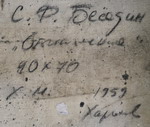 С. Ф. Беседин
90 х 70
Х. М. 1959
Харьков